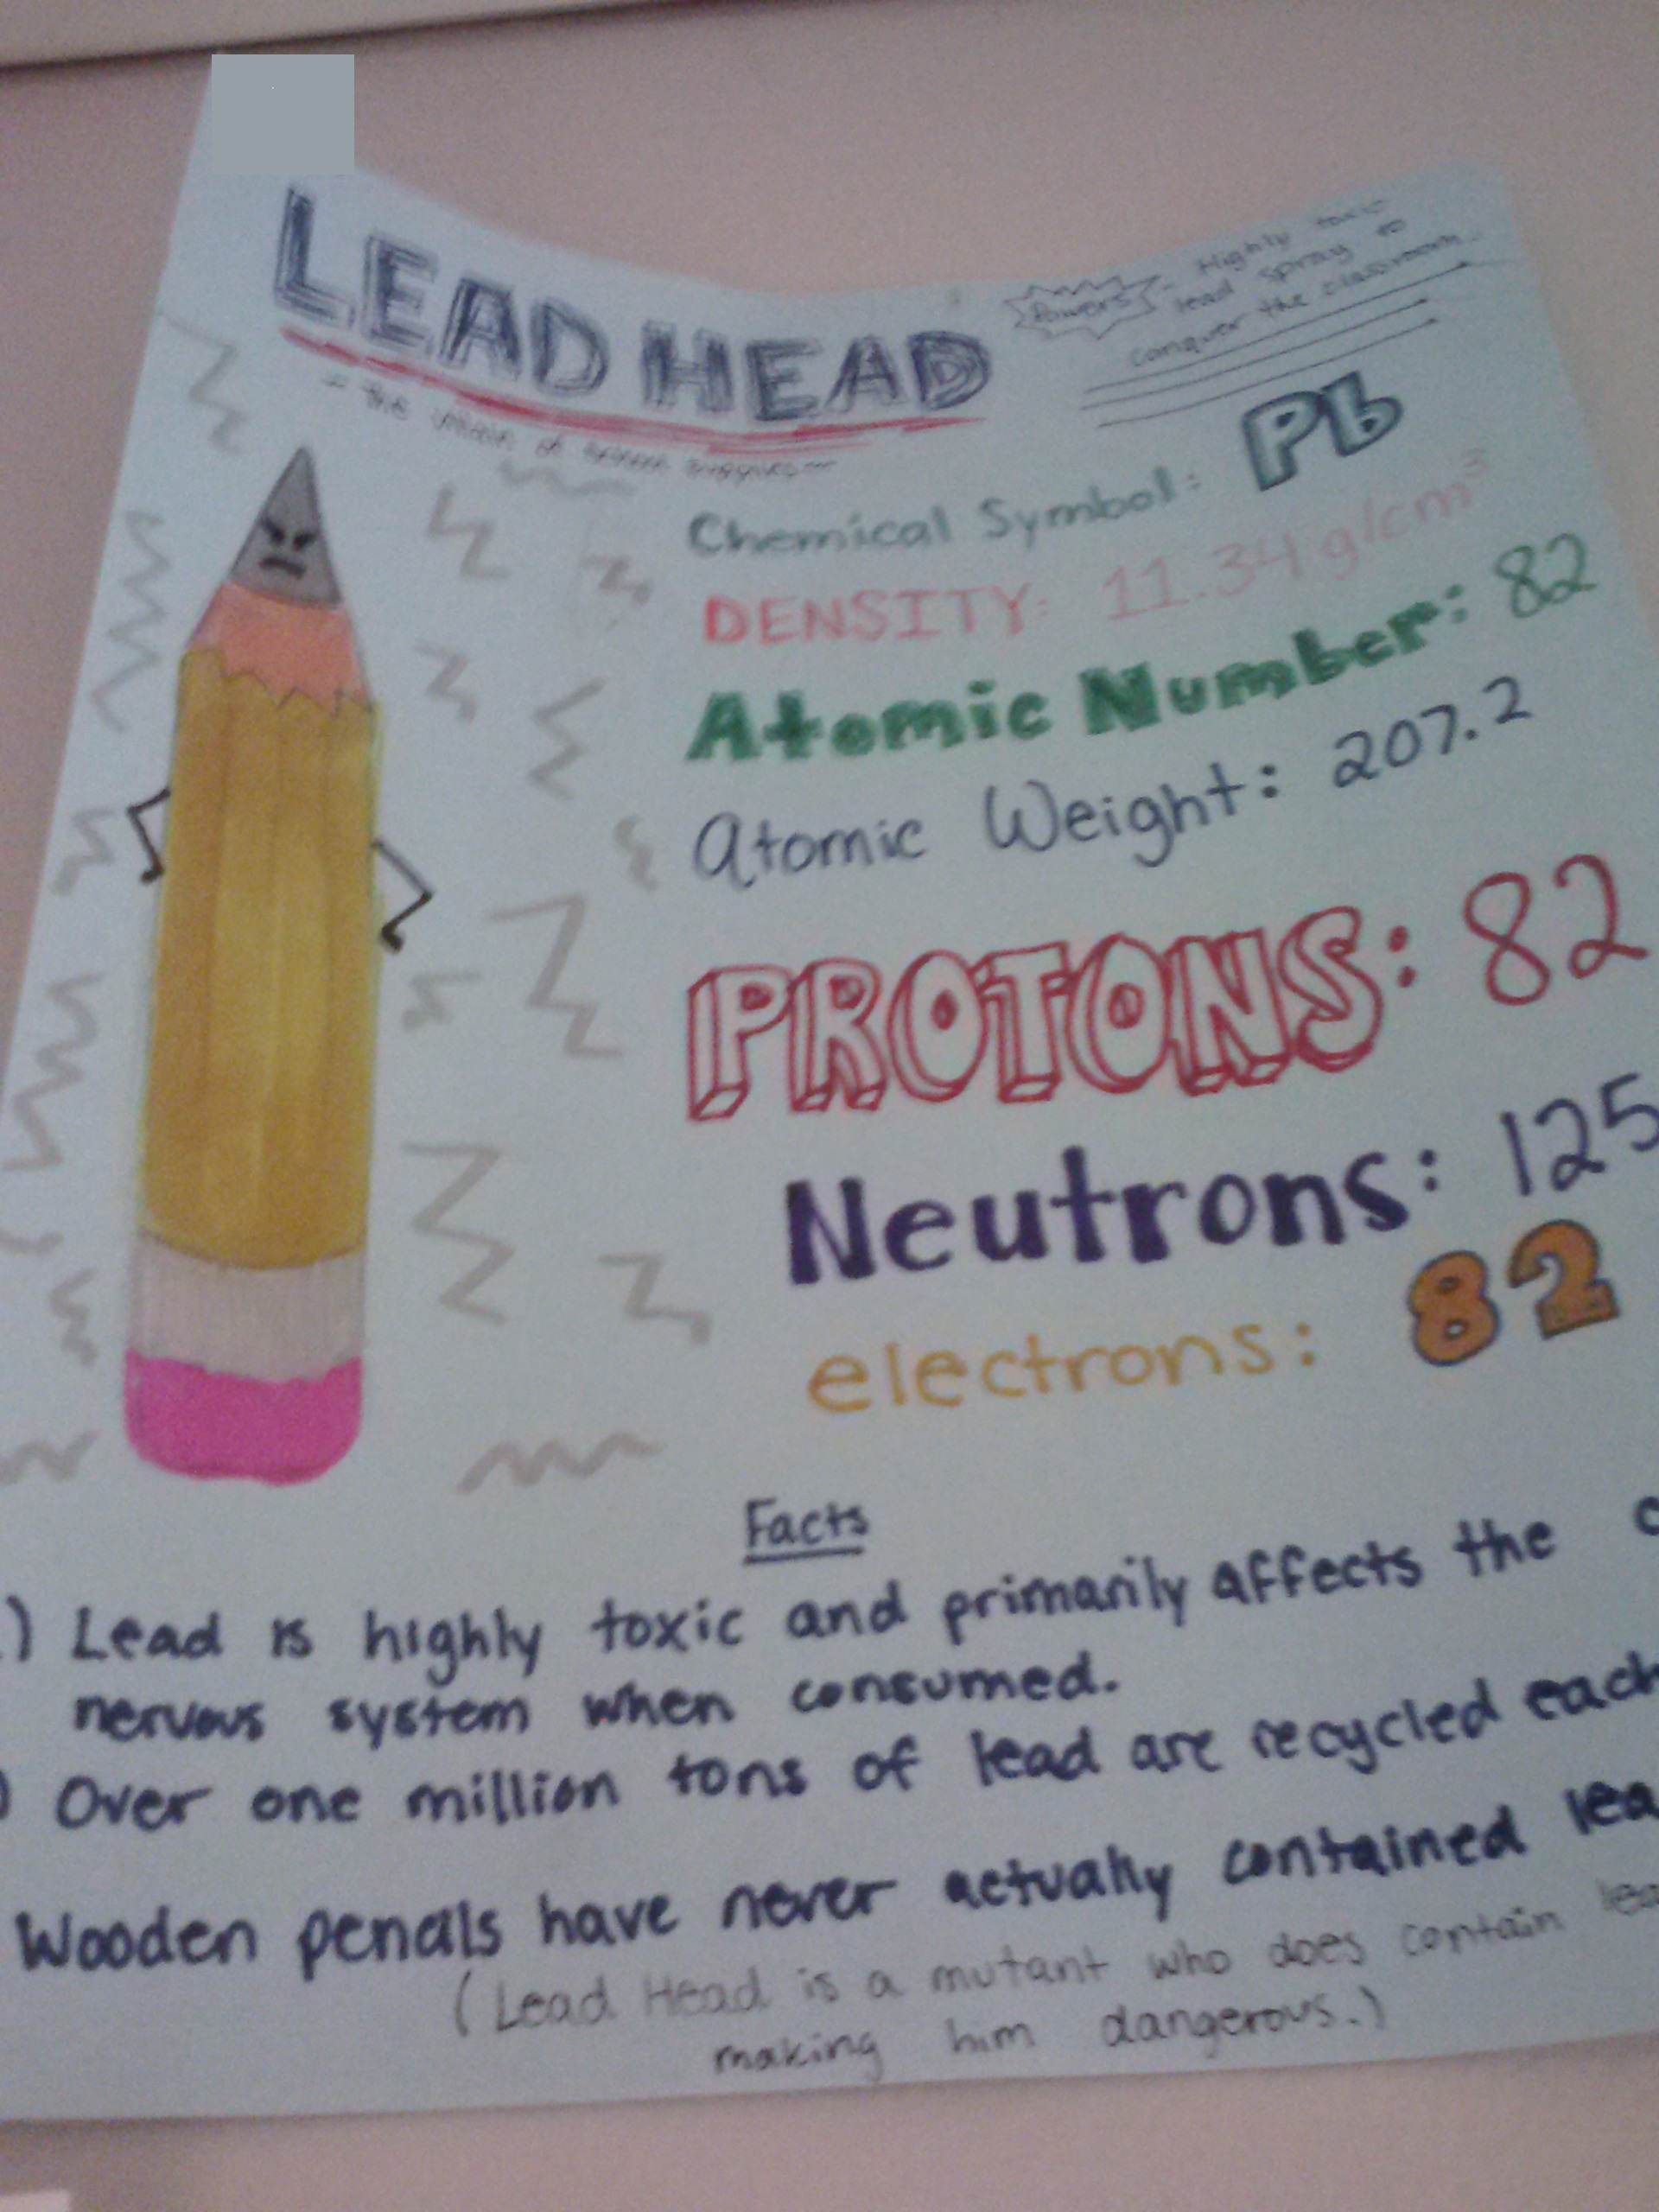 LEAD HEAD
- the villain of school supplies -
Powers - Highly toxic
lead spray to
conquer the classroom.
Chemical Symbol: Pb
DENSITY: 11.34 g/cm³
Atomic Number: 82
Atomic Weight: 207.2
PROTONS: 82
Neutrons: 125
electrons: 82
Facts
.) Lead is highly toxic and primarily affects the c
nervous system when consumed.
) Over one million tons of lead are recycled each
Wooden pencils have never actually contained lea
(Lead Head is a mutant who does contain lea
making him dangerous.)